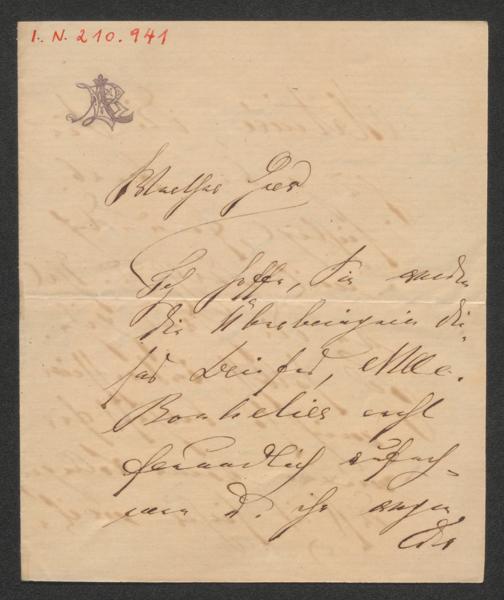 I. N. 210.941
Werther Herr
Ich hoffe, Sie werden
die Überbringerin die-
ses Briefes, Mlle.
recht
freundlich aufneh-
men u. ihr